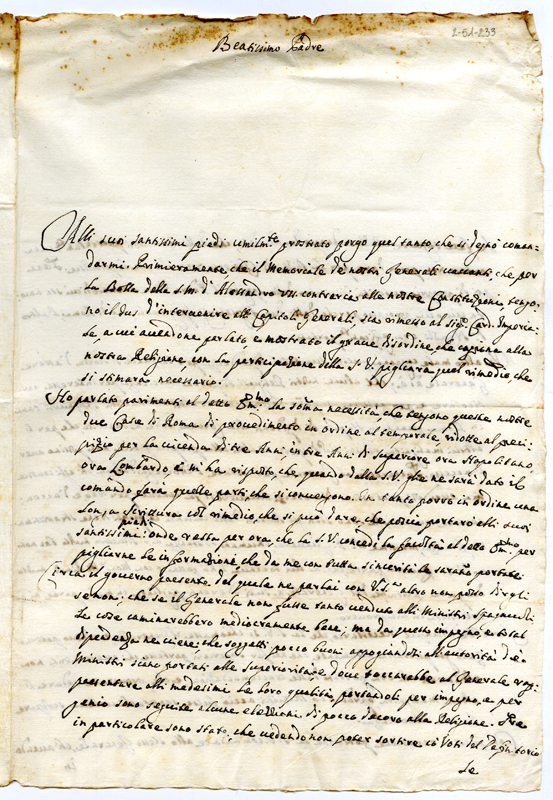 2-51-233
Beatissimo Padre
Alli suoi santissimi piedi umilmte prostrato porgo quel tanto, che si degnò coman-
darmi. Primieramente, che il Memoriale de nostri Generali vacanti, che per
la Bolla della s.m. d'Alessandro VII. contraria alle nostre Constituzioni tengo-
no il ius d'intervenire alli Capitoli Generali, sia rimesso al sigr Card. Imperia-
le, a cui avendone parlato, e mostrato il grave disordine, che cagiona alla
nostra Religione, con la participazione della S. V. pigliarà quel rimedio, che
si stimarà necessario.
Ho parlato parimenti al detto Emmo la somma necessità che tengono queste nostre
due Case di Roma di procedimento in ordine al temporale, ridotte al preci-
pizio per la vicenda di tre Anni in tre Anni di Superiore ora Napolitano,
ora Lombardo, e mi ha risposto, che quando dalla S. V. gliene sarà dato il
comando farà quelle parti, che si convengono. In tanto porrò in ordine una
scrittura col rimedio, che si può dare, che poscia portarò alli suoi
santissimi piedi: onde resta per ora, che la S. V. concedi la facoltà al detto Emmo per
pigliarne le informazioni, che da me con tutta sincerità le saranno portate.
Circa il governo presente, del quale ne parlai con V. S. altro non posso dirgli
se non; che se il Generale non fusse tanto venduto alli Ministri Spagnuoli
le cose caminarebbero mediocramente bene; ma da questo impegno, e total
dipendenza ne viene: che soggetti pocco buoni appogiandosi all'autorità de'
Ministri siano portati alle superiorità, e dove toccarebbe al Generale rap-
presentare alli medesimi le loro qualità, portandoli per impegno, e per
genio sono seguite alcune elezzioni di pocco decoro alla Religione. Tre
in particolare sono stati, che vedendo non poter sortire coi Voti del Definitorio
le